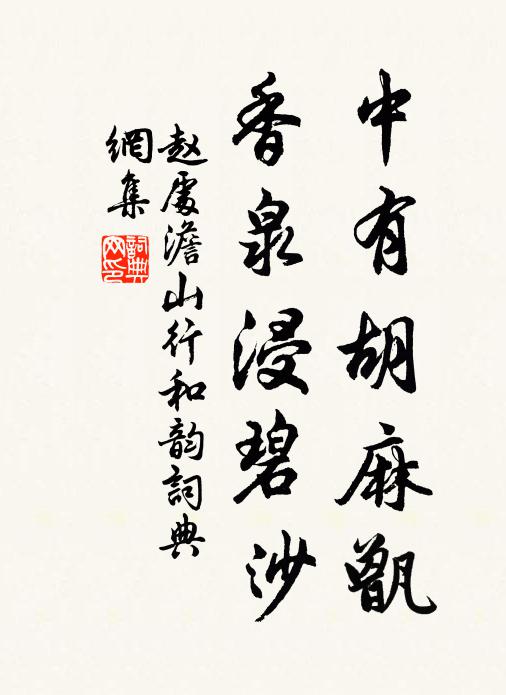 中有胡麻甑
香泉浸碧沙
赵處澹山行和韵詞典
網集
詞典
网印